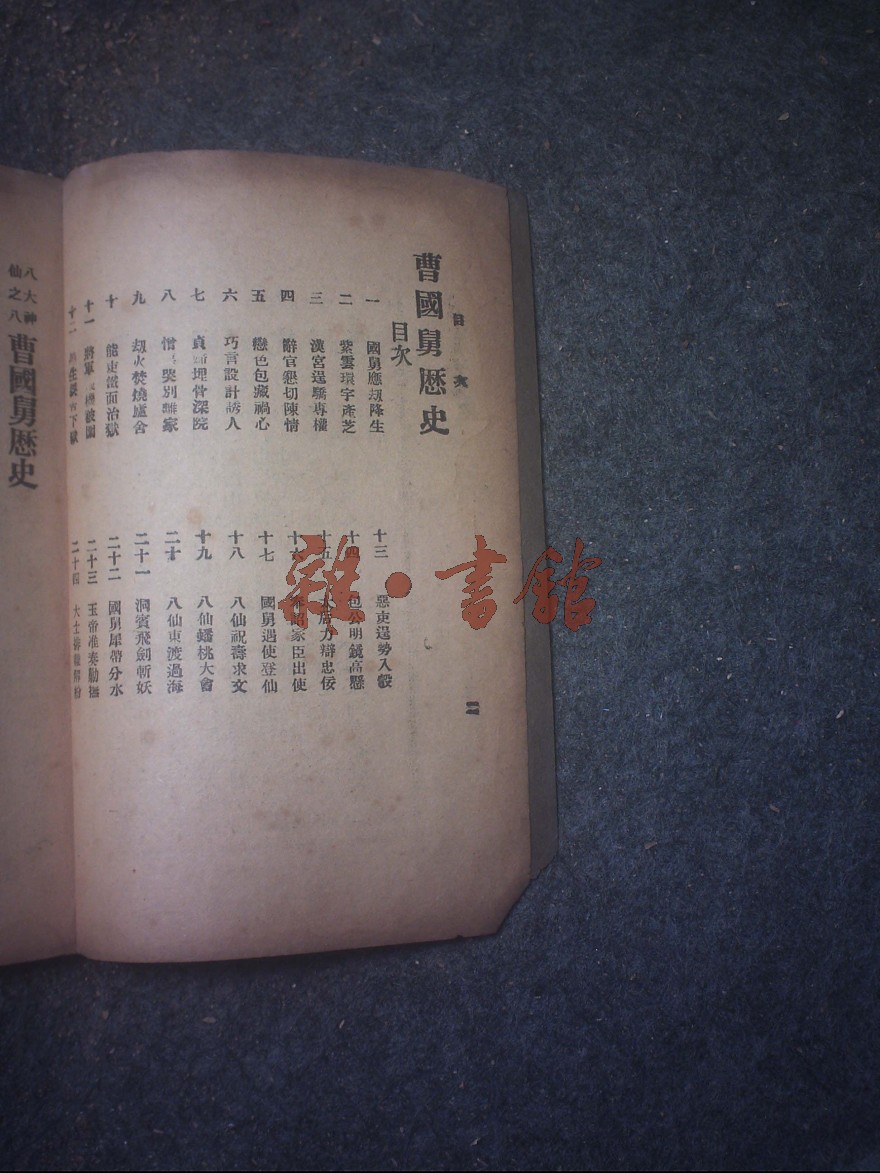 曹國舅歷史
目次
目次
一 國舅應刼降生
二 紫雲環宇產芝
三 漢宮逞驕專權
四 辭官懇切陳情
五 戀色包藏禍心
六 巧言設計誘人
七 貞 埋骨深院
八 惜 哭別離家
九 刼火焚燒廬舍
十 能吏鐵面治獄
十一 將軍
十二 下獄
十三 惡吏逞勢入彀
十四 包公明鏡高懸
十五 力辯忠佞
十六 家臣出使
十七 國舅遇使登仙
十八 八仙祝壽求文
十九 八仙蟠桃大會
二十 八仙東渡過海
二十一 洞賓飛劍斬妖
二十二 國舅犀帶分水
二十三 玉帝准奏勦撫
二十四 大士
二
八大神仙之八 曹國舅歷史
雜·書館